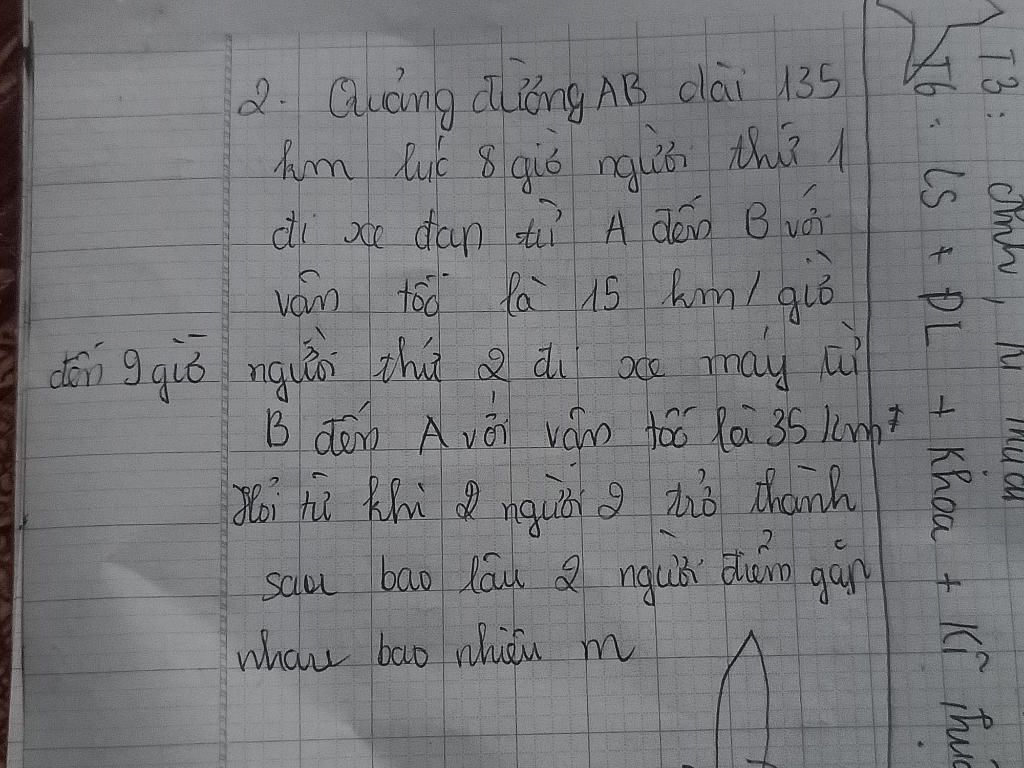 2. Quảng đường AB dài 135
km lúc 8 giờ người thứ 1
đi xe đạp từ A đến B với
vận tốc là 15 km/giờ
đến 9 giờ người thứ 2 đi xe máy từ
B đến A với vận tốc là 35 km/
Hỏi từ khi 2 người 2 trở thành
sau bao lâu 2 người điểm gặp
nhau bao nhiêu m
T3:
T6: LS + ĐL + Khoa + Kĩ